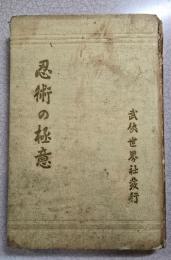 忍術の極意
武侠世界社發行